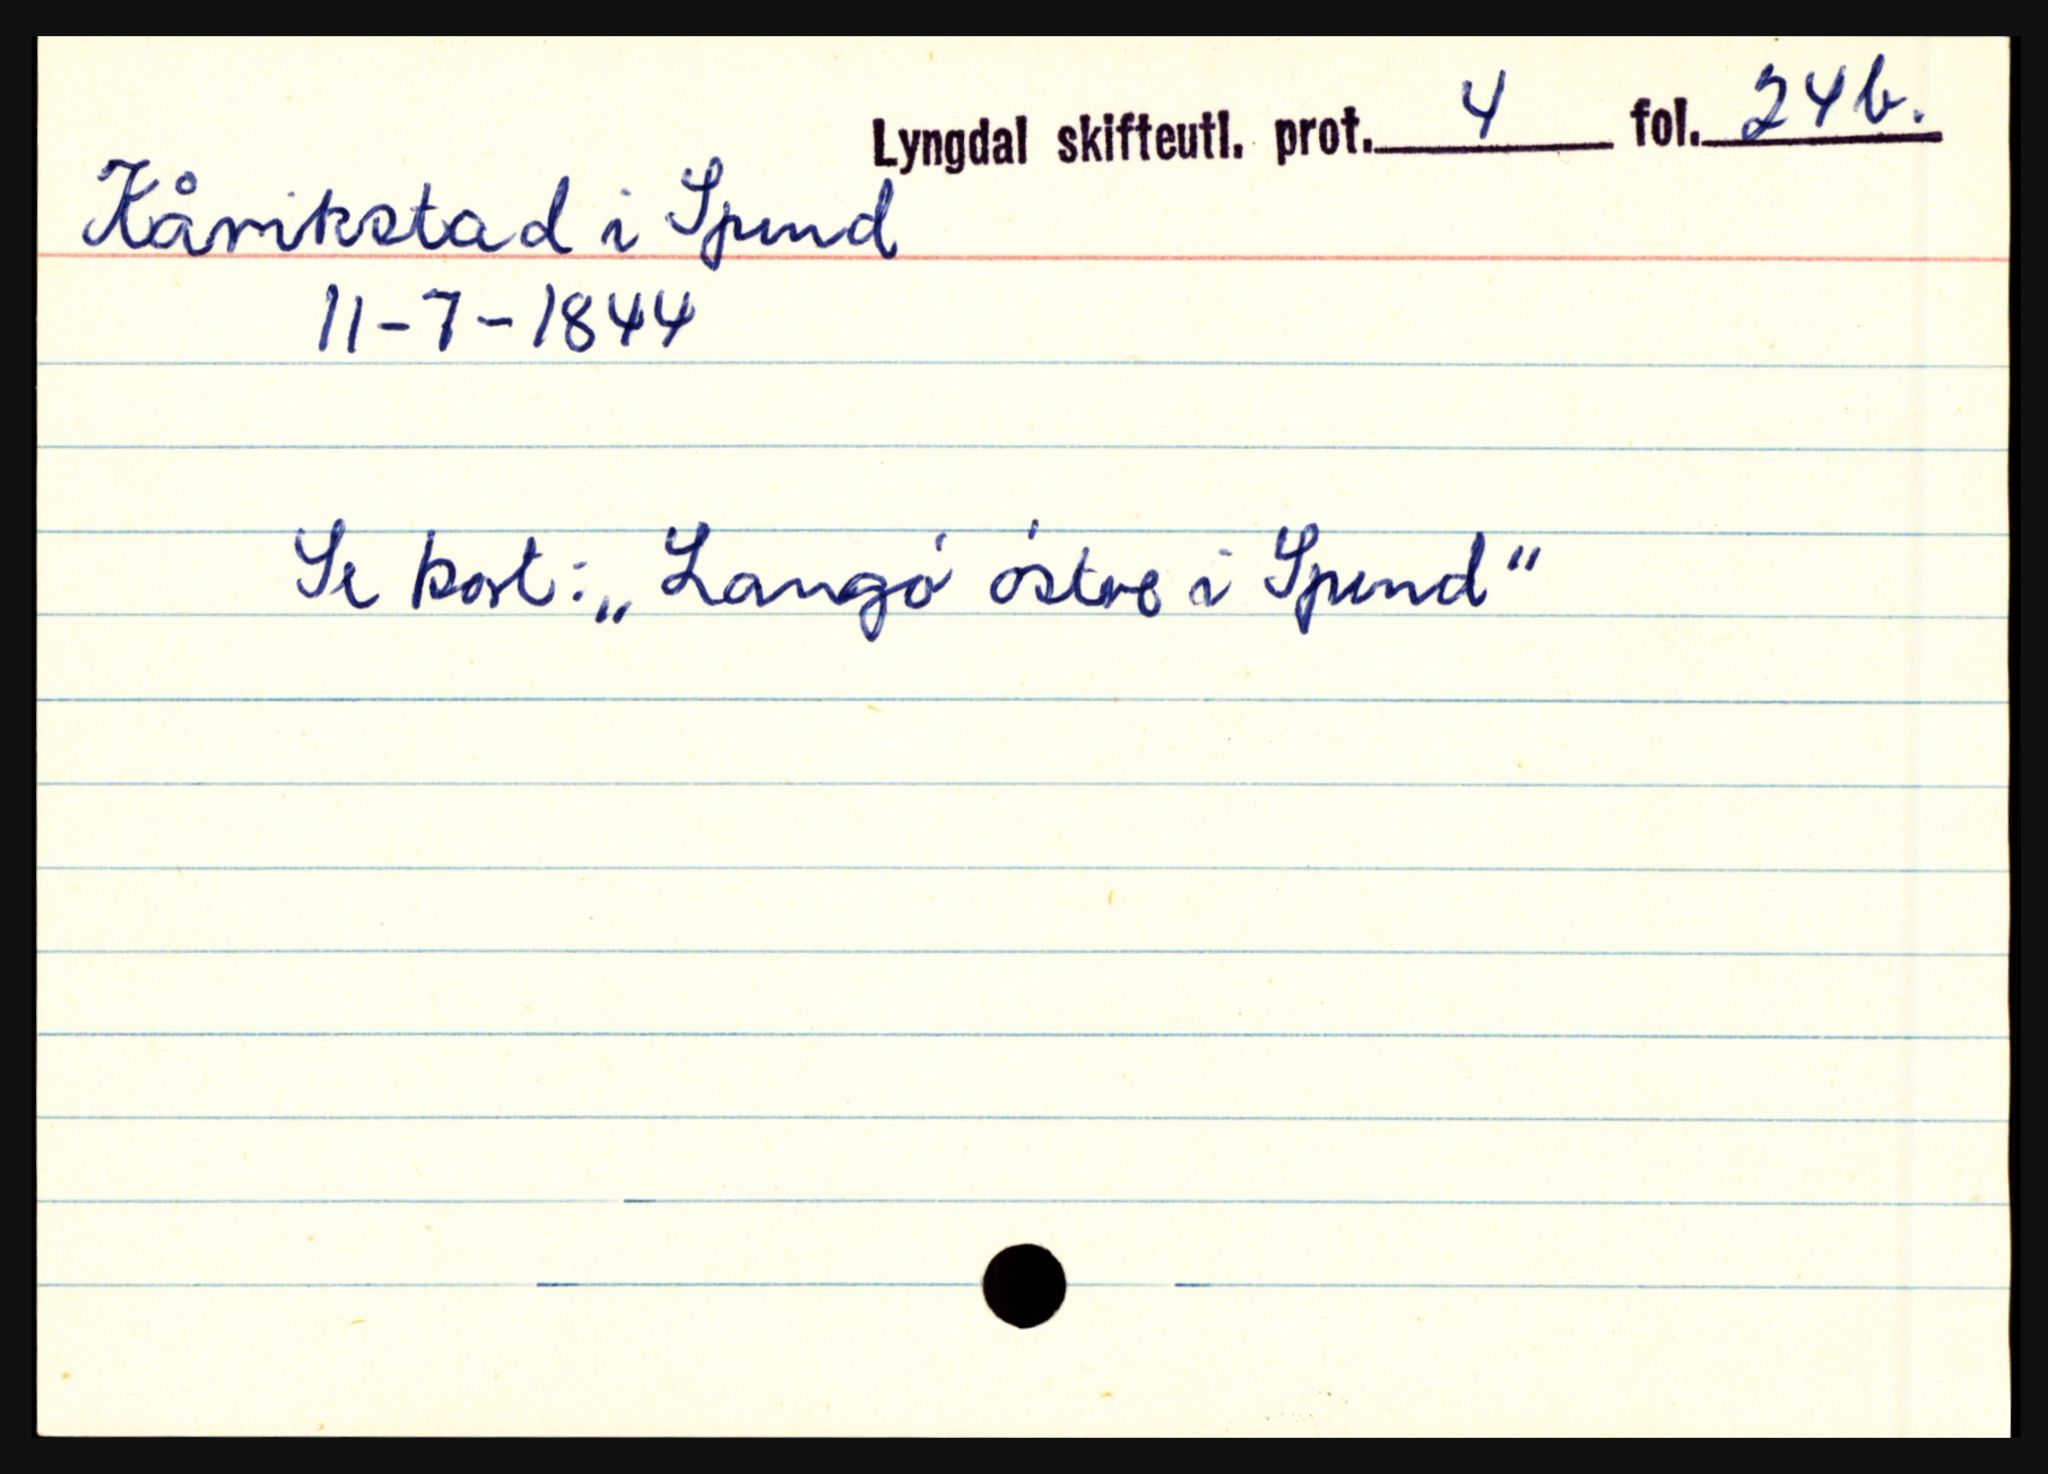 Lyngdal skifteutl. prot. 4 fol. 24b.
Kårikstad i Spind
11-7-1844
Se kort: „Langø østre i Spind“